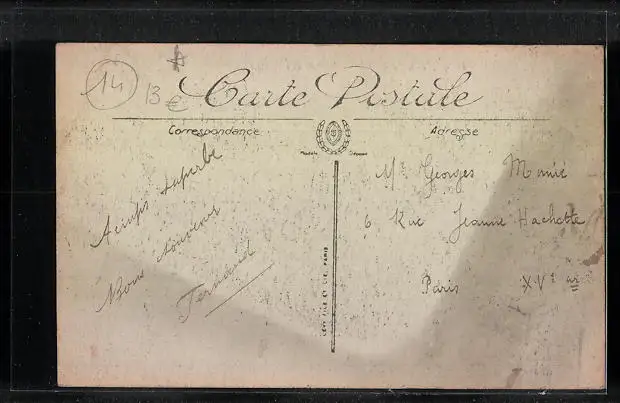 14
13 €
Carte Postale
Correspondance
Adresse
Modèle Déposé
Temps superbe
Bon souvenir
Fernand
LEVY FILS ET CIE, PARIS
Mr Georges
6 Rue Jeanne Hachette
Paris XVe arr